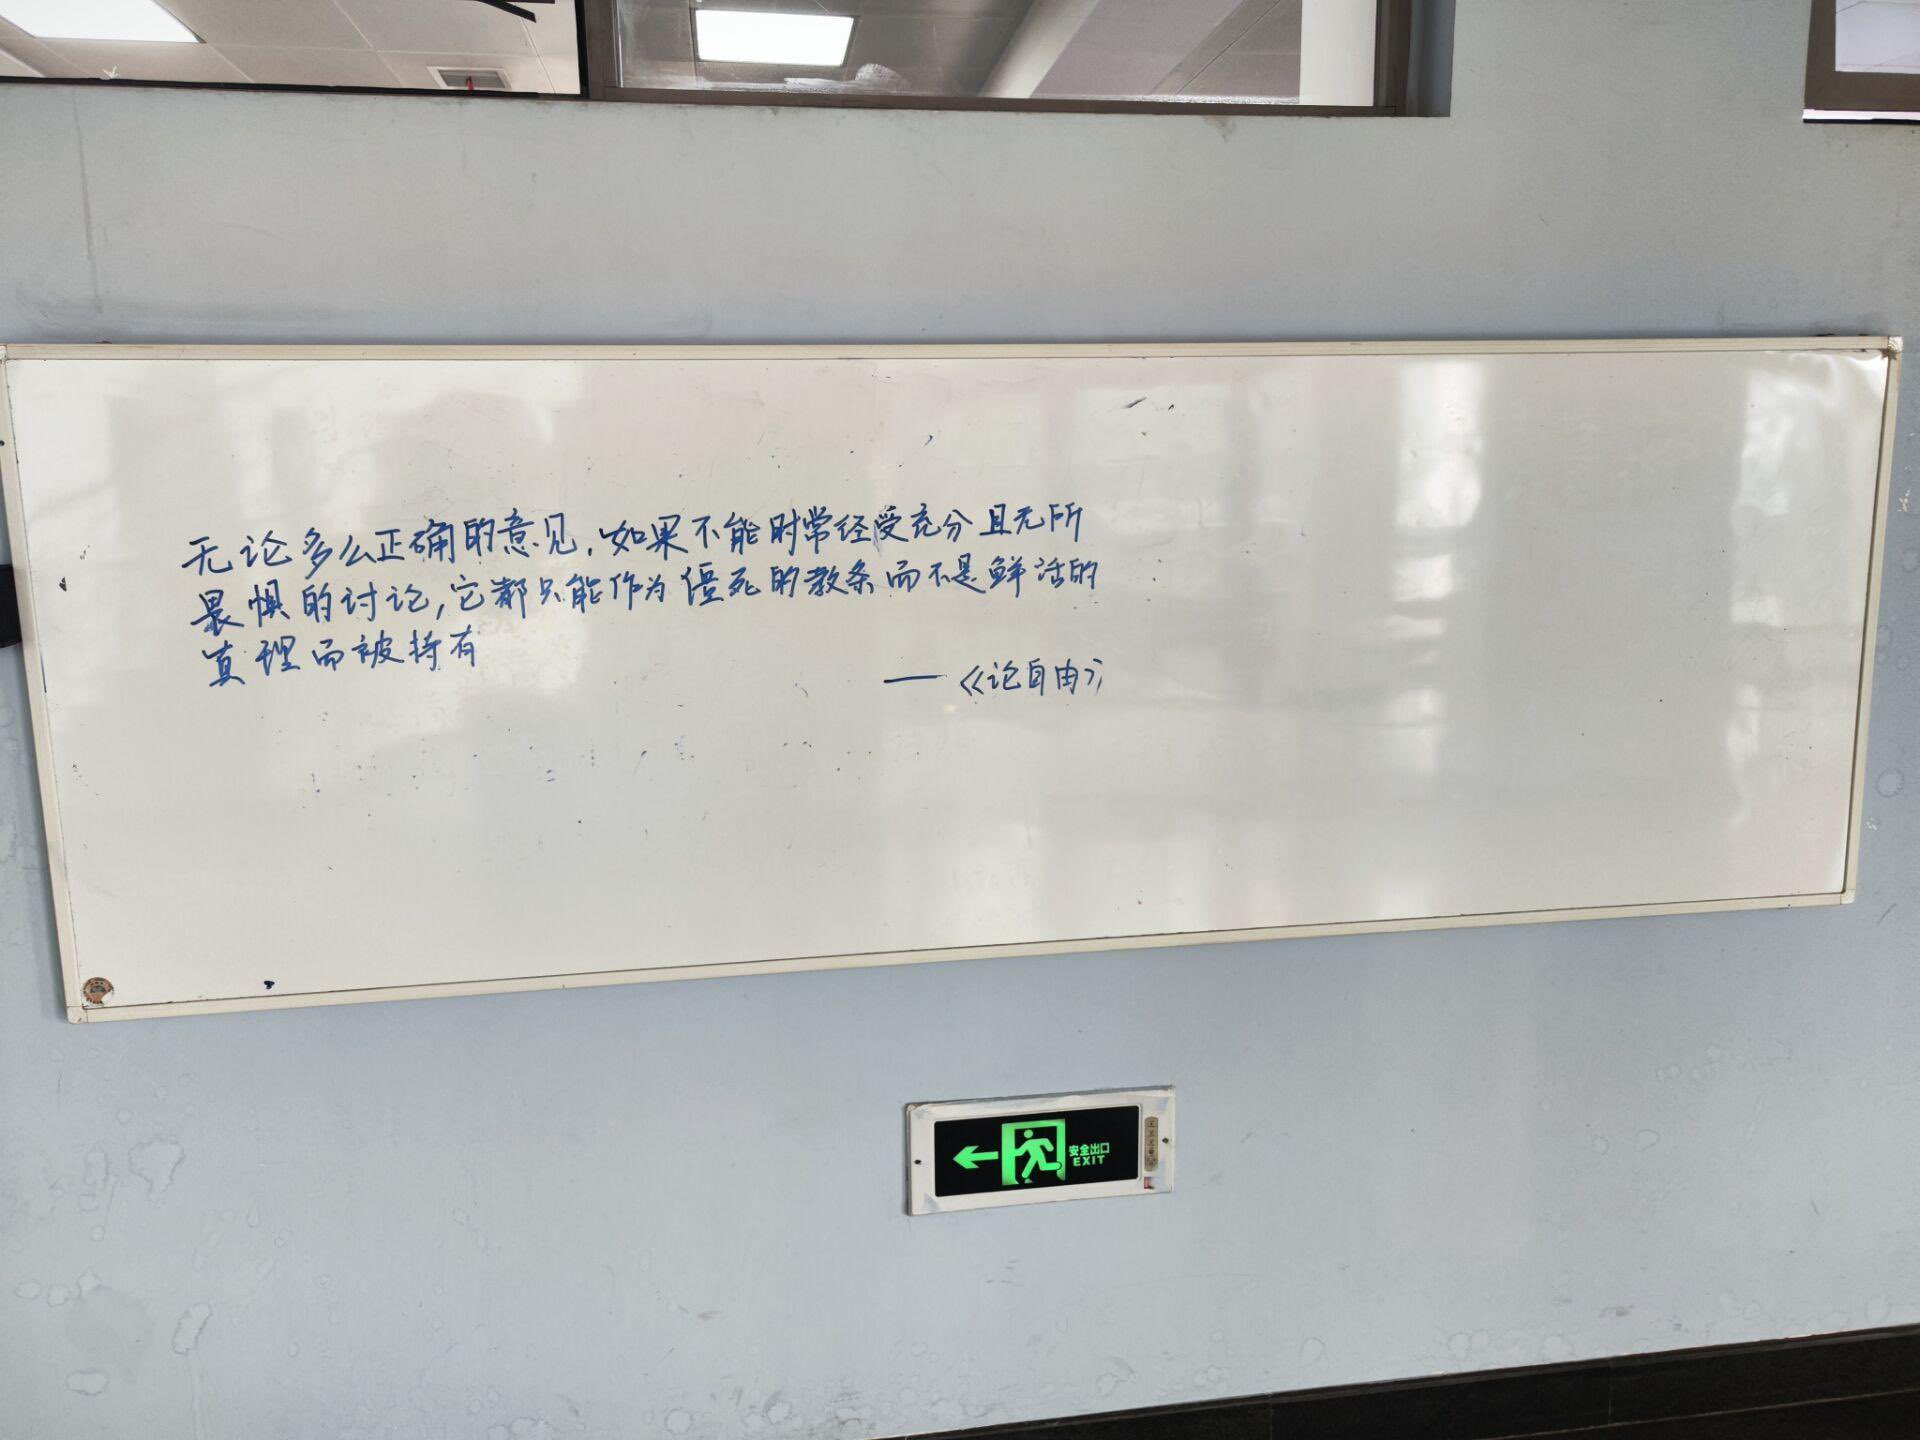 无论多么正确的意见，如果不能时常经受充分且无所
畏惧的讨论，它都只能作为僵死的教条而不是鲜活的
真理而被持有
——《论自由》
安全出口
EXIT